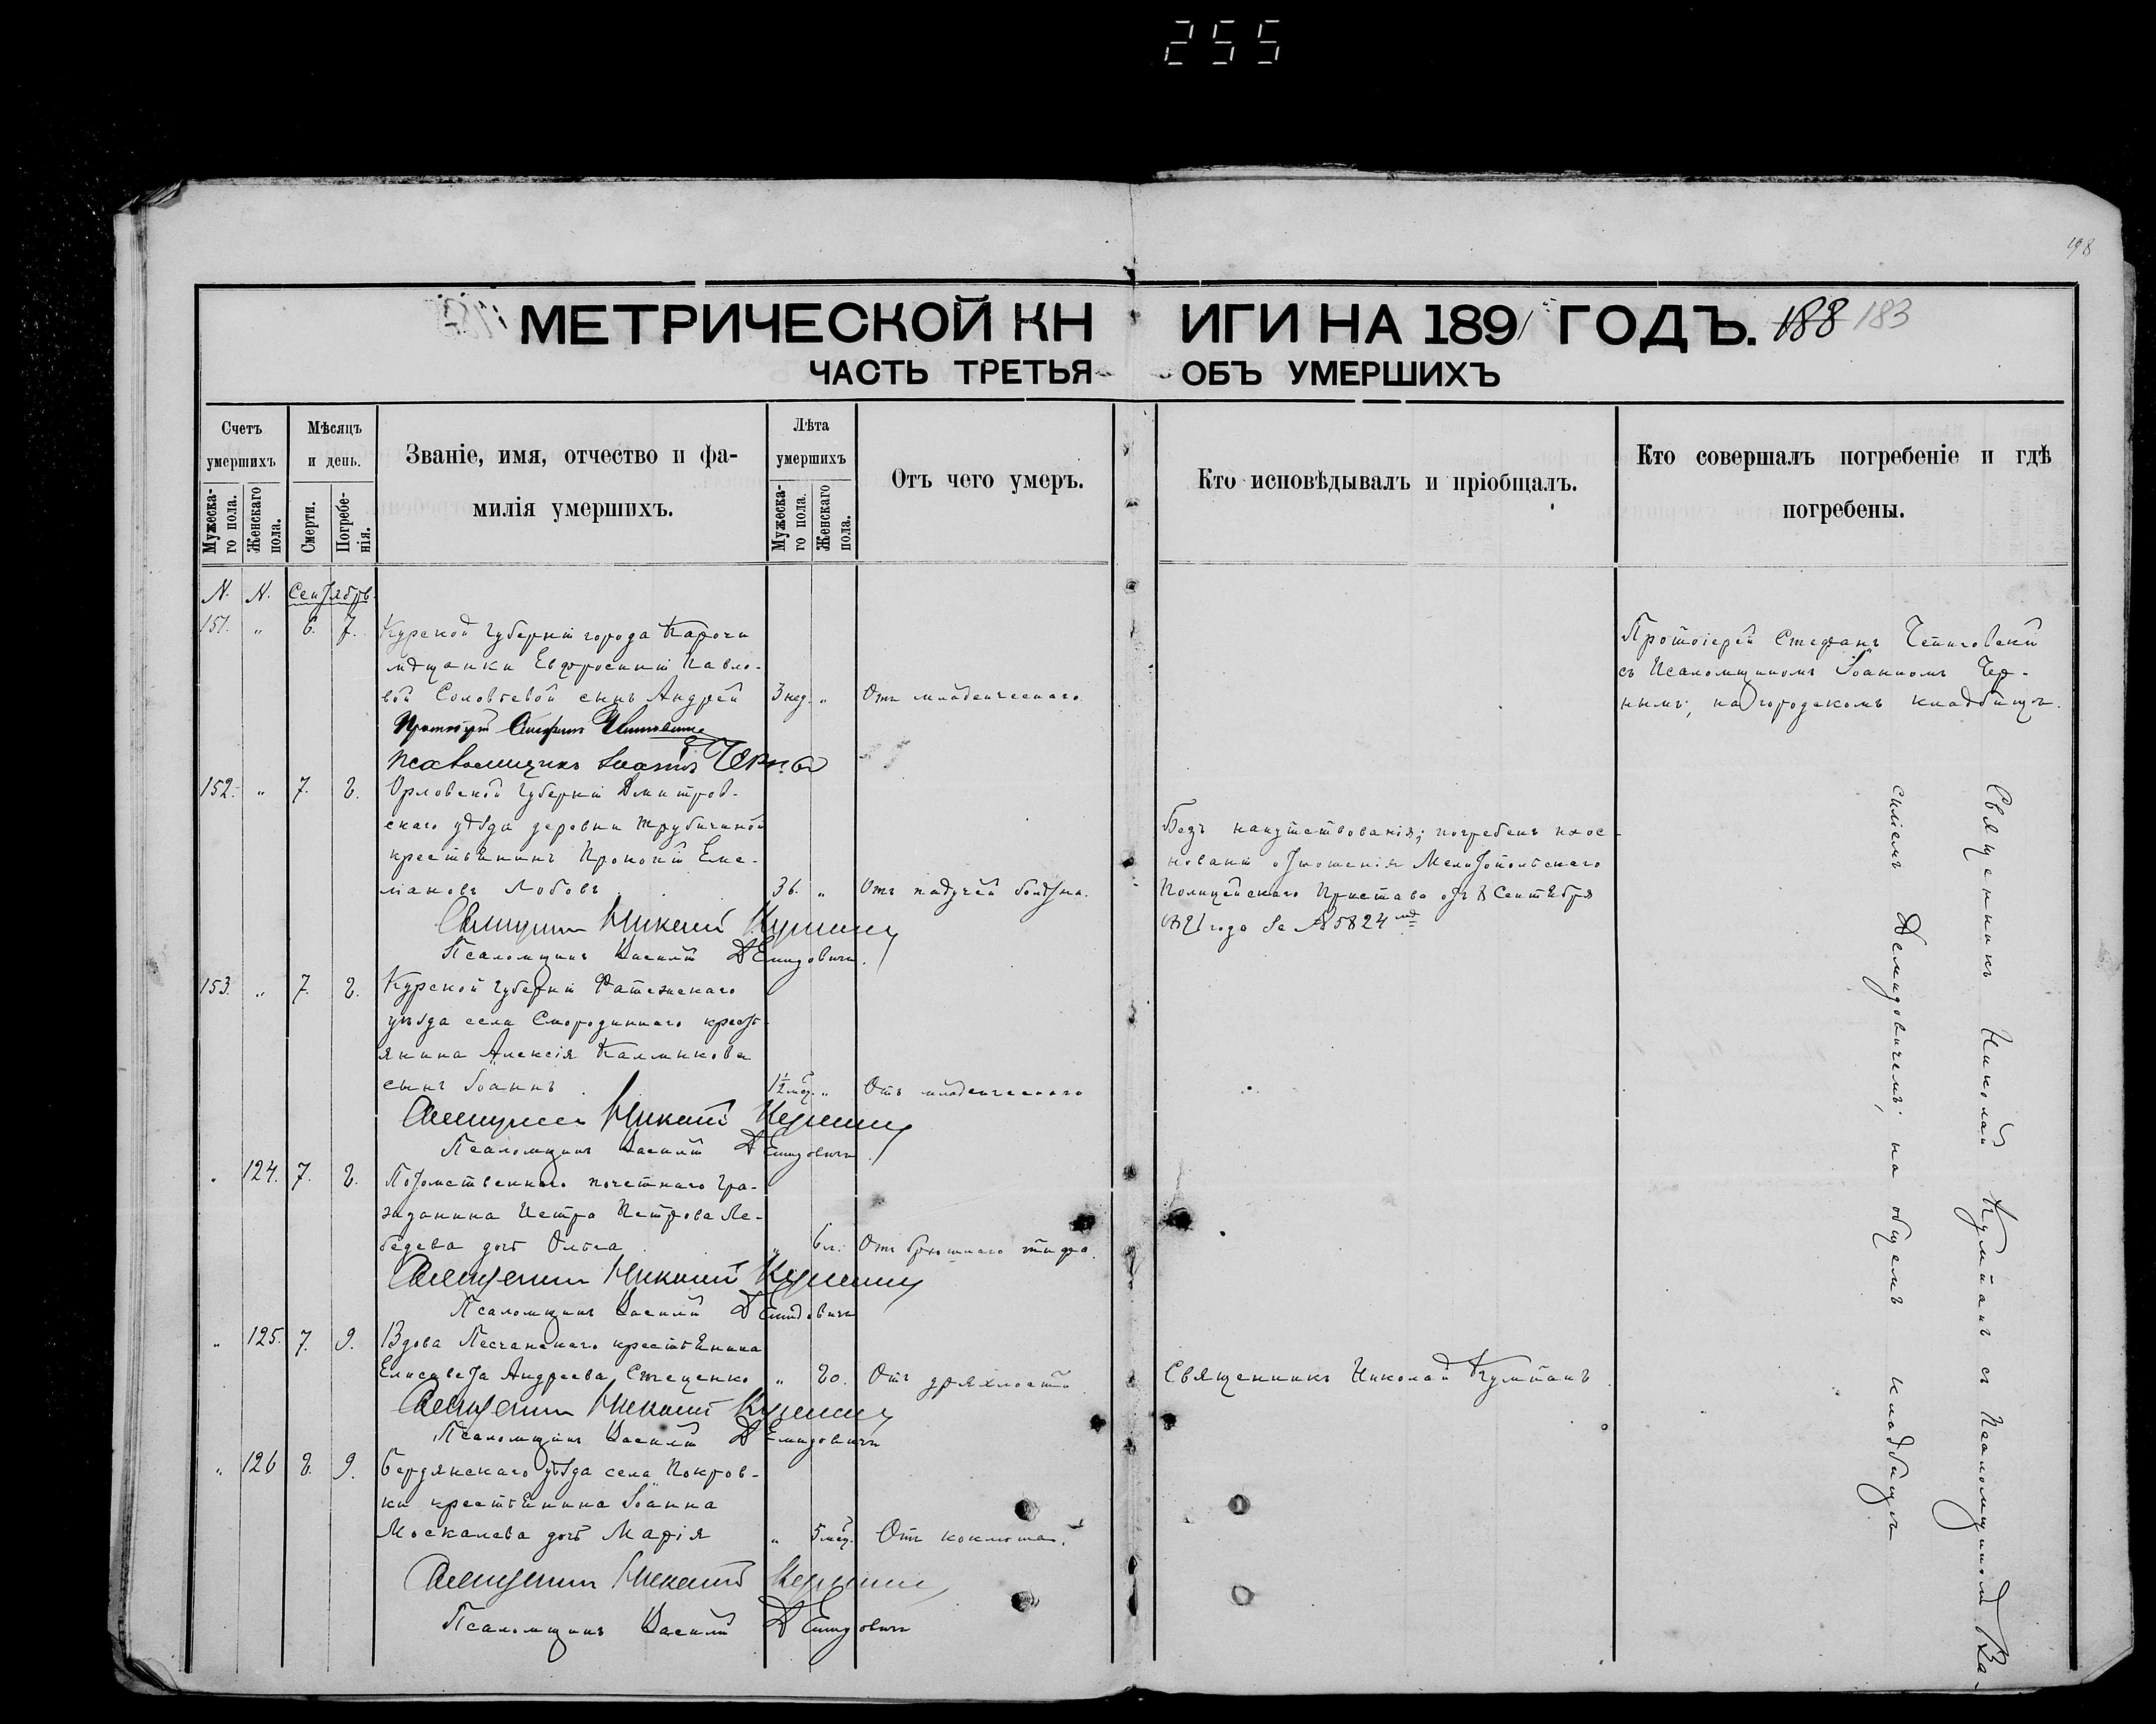 255
198
МЕТРИЧЕСКОЙ КНИГИ НА 1891 ГОДЪ. 188 183
ЧАСТЬ ТРЕТЬЯ ОБЪ УМЕРШИХЪ
Счетъ умершихъ
Мужеска-го пола.
Женскаго пола.
Мѣсяцъ и день.
Смерти.
Погребе-нія.
Званіе, имя, отчество и фа-
милія умершихъ.
Лѣта умершихъ
Мужеска-го пола.
Женскаго пола.
Отъ чего умеръ.
Кто исповѣдывалъ и пріобщалъ.
Кто совершалъ погребеніе и гдѣ
погребены.
N. N. Сентябрь.
151. " 6. 7. Курской губерніи города Карочи
мѣщанки Евфросиніи Павло-
вой Соловьевой сынъ Андрей 3 нед. " Отъ младенческаго
Протоіерей Стефанъ
Псаломщикъ Іоаннъ Черный
Протоіерей Стефанъ
съ Псаломщикомъ Іоанномъ Чер-
нымъ, на городскомъ кладбищѣ.
152. " 7. 8. Орловской губерніи Дмитров-
скаго уѣзда деревни Трубичиной
крестьянинъ Прокопій Еме-
ліановъ Лобовъ 36 " Отъ падучей болѣзни.
Священникъ Николай
Псаломщикъ Василій Демидовичъ.
Безъ напутствованія; погребенъ на ос-
нованіи отношенія Мелитопольскаго
Полицейскаго Пристава отъ 8 Сентября
1891 года за № 5824
153. " 7. 8. Курской губерніи Фатежскаго
уѣзда села Смородиннаго кресть-
янина Алексія Калмыкова
сынъ Іоаннъ 1½ мѣс. " Отъ младенческаго
Священникъ Николай
Псаломщикъ Василій Демидовичъ
" 124. 7. 8. Потомственнаго почетнаго гра-
жданина Петра Петрова Ле-
бедева дочь Ольга " 6 л. Отъ брюшнаго тифа.
Священникъ Николай
Псаломщикъ Василій Демидовичъ
" 125. 7. 9. Вдова Песчанскаго крестьянина
Елисавета Андреева Стеценко " 80. Отъ дряхлости
Священникъ Николай
Псаломщикъ Василій Демидовичъ
Священникъ Николай
" 126 8. 9. Бердянскаго уѣзда села Покров-
ки крестьянина Іоанна
Москалева дочь Марія " 5 мѣс. Отъ коклюша.
Священникъ Николай
Псаломщикъ Василій Демидовичъ
Священникъ Николай съ Псаломщикомъ Ва-
силіемъ Демидовичемъ; на общемъ кладбищѣ